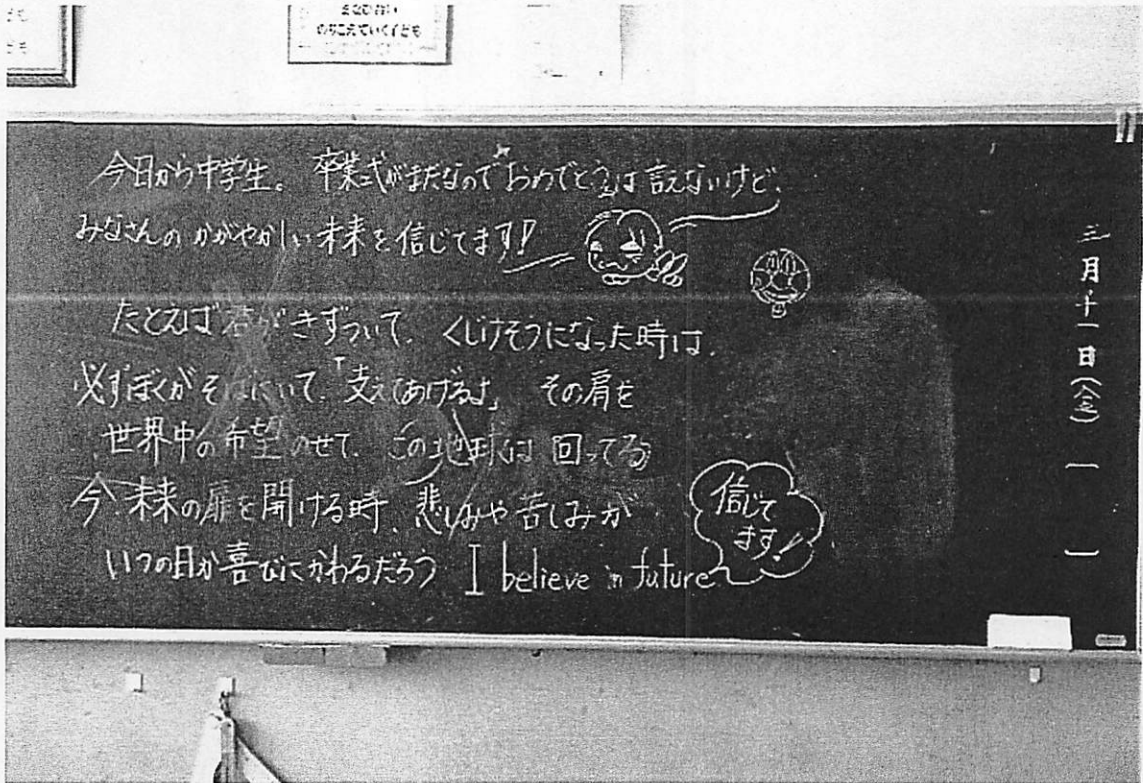 のりこえていく子ども
今日から中学生。卒業式がまだなので「おめでとう」は言えないけど、
みなさんのかがやかしい未来を信じてます!
たとえば君がきずついて、くじけそうになった時は、
必ずぼくがそばにいて、「支えてあげるよ」その肩を
世界中の希望のせて、この地球は回ってる
今、未来の扉を開ける時、悲しみや苦しみが
いつの日か喜びにかわるだろう I believe in future
信じて
ます!
三月十一日(金)